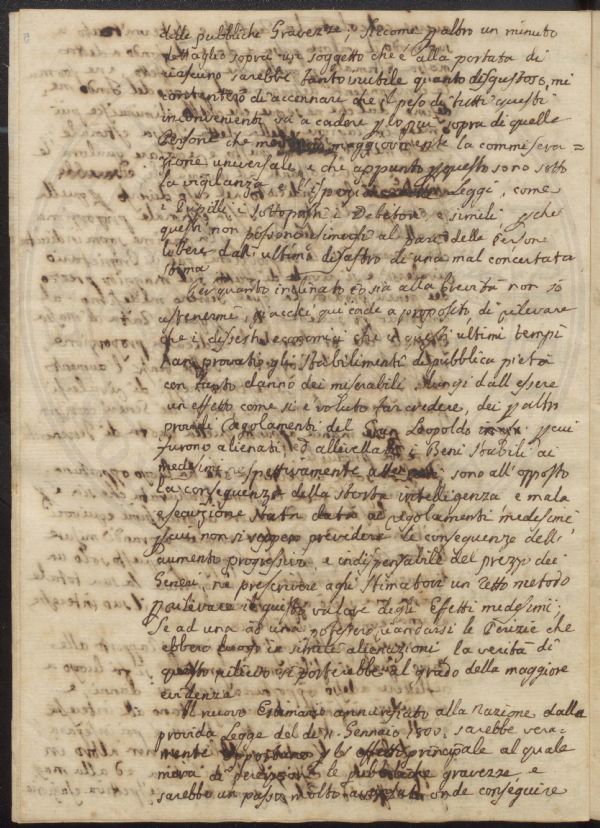 delle pubbliche Gravezze; siccome p altro un minuto
dettaglio sopra un soggetto che è alla portata di
ciascuno sarebbe tanto inutile quanto disgustoso, mi
contenterò di accennare che il peso di tutti questi
inconvenienti va a cadere p lo più sopra di quelle
Persone che maggiormente la commisera=
zione universale, e che appunto p questo sono sotto
la vigilanza Leggi, come
i Pupilli i Sottoposti i Debitori e simili p che
questi non possono esimersi al pari delle Persone
libere dall' ultimo disastro di una mal concertata
stima
Per quanto inclinato io sia alla brevità non sò
astenermi, giacchè qui cade a proposito di rilevare
che i dissesti economici che in questi ultimi tempi
han provato gli Stabilimenti di pubblica pietà
con tanto danno dei miserabili, lungi dall' essere
un effetto come si è voluto far credere, dei p altro
providi Regolamenti del Gran Leopoldo p cui
furono alienati, ed allivellati i Beni Stabili ai
medesimi respettivamente sono all' opposto
la conseguenza della storta intelligenza e mala
esecuzione data ai regolamenti medesimi
p cui non si seppero prevedere le conseguenze dell'
aumento progressivo, e indispensabile del prezzo dei
Generi, nè prescrivere agli Stimatori un retto metodo
p rilevare il giusto valore degli Effetti medesimi;
Se ad una ad una potessero guardarsi le Perizie che
ebbero luogo in simili alienazioni la verità di
questo rilievo si porterebbe al grado della maggiore
evidenza
Il nuovo Estimario annunziato alla Nazione dalla
provida Legge del dì Gennaio sarebbe vera=
mente opportuno p l' effetto principale al quale
mirava di perequare le pubbliche gravezze, e
sarebbe un passo molto onde conseguire